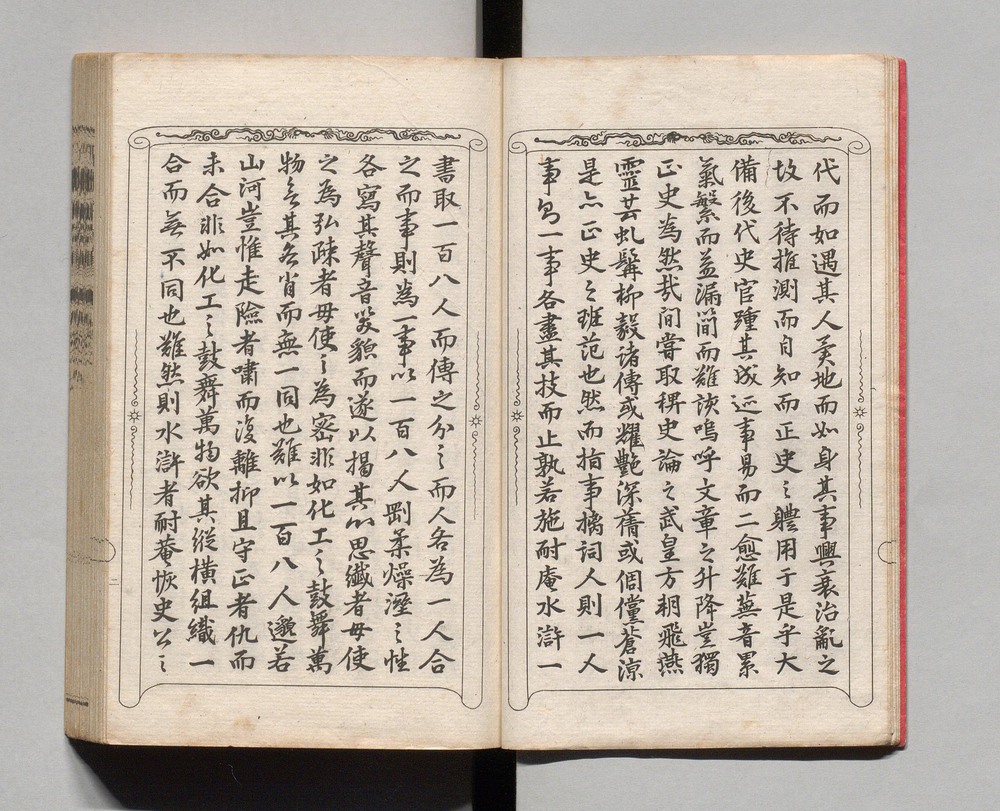 代而如遇其人矣地而如身其事興衰治亂之
故不待推測而自知而正史之軆用于是乎大
備後代史官踵其成迹事易而工愈難蕪音累
氣繁而益漏簡而雖詼嗚呼文章之升降豈獨
正史為然哉間嘗取稗史論之武皇方朔飛燕
靈芸虬髯柳毅諸傳或耀艷深蒨或倜儻蒼涼
是亦正史之班范也然而指事摛詞人則一人
事一事各盡其技而止孰若施耐庵水滸一
書取一百八人而傳之分之而人各為一人合
之而事則為一事以一百八人剛柔燥溼之性
各寫其聲音笑貌而遂以揭其心思纖者毋使
之為弘疎者毋使之為密非如化工之鼓舞萬
物其各肖而無一同也雖以一百八人邈若
山河豈惟走險者嘯而復離抑且守正者仇而
未合非如化工之鼓舞萬物欲其縱橫組織一
合而無不同也雖然則水滸者耐菴恢史公之